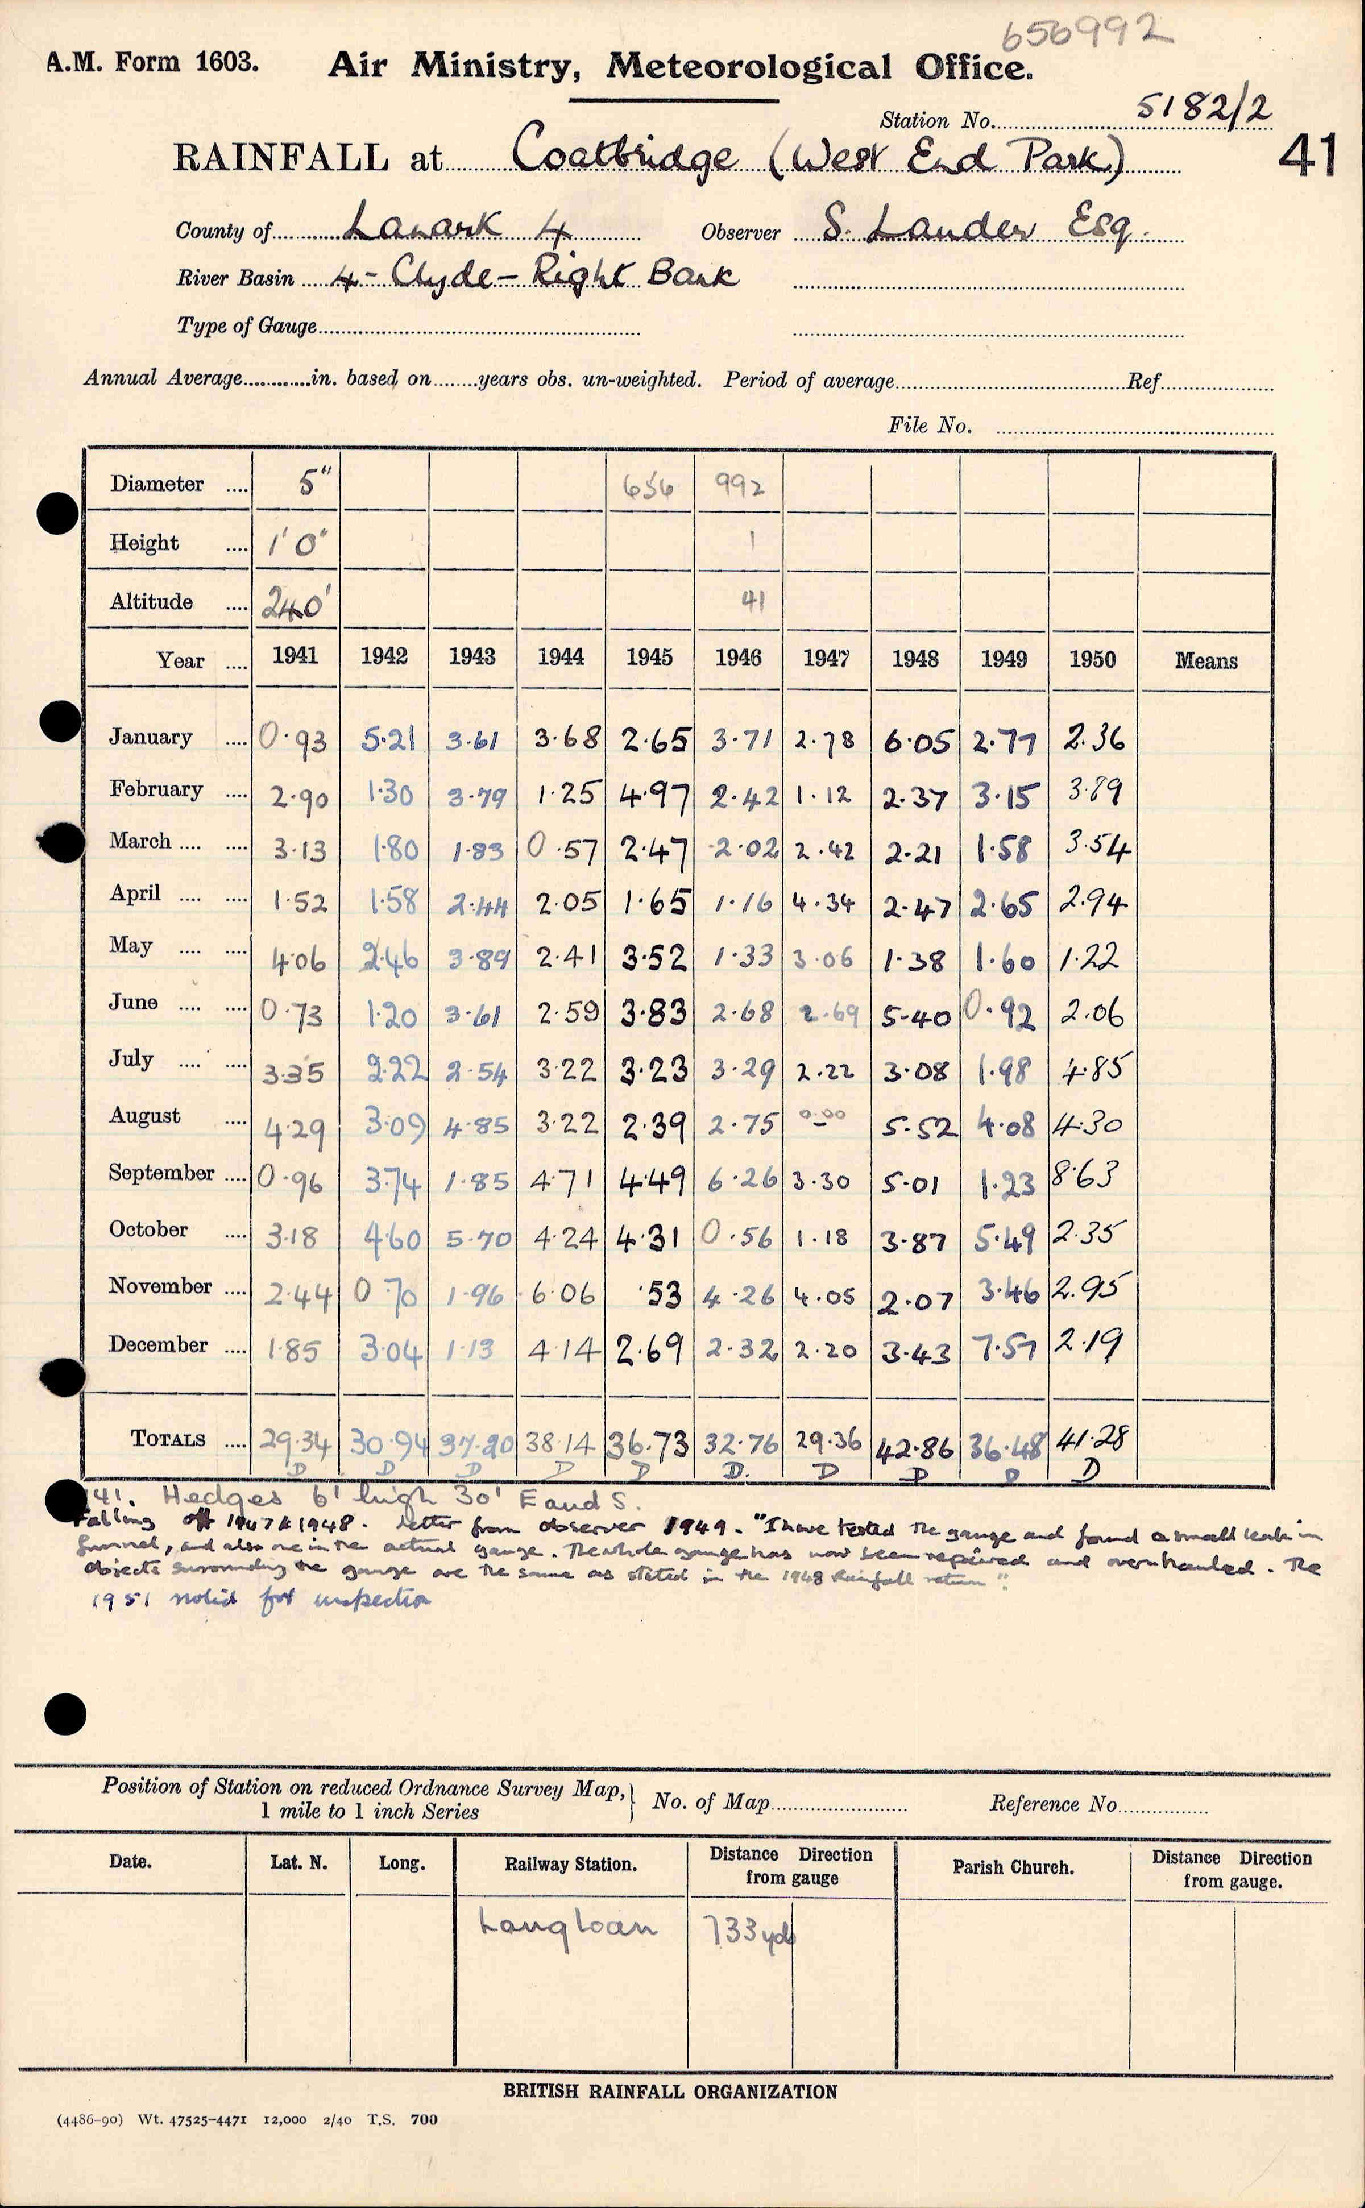 656992
A.M. Form 1603. Air Ministry, Meteorological Office.
Station No. 5182/2
RAINFALL at Coatbridge (West End Park) 41
County of Lanark 4 Observer S. Lauder Esq.
River Basin 4-Clyde-Right Bank
Type of Gauge
Annual Average............in. based on........years obs. un-weighted. Period of average Ref.
File No.
Diameter .... 5" 656 992
Height .... 1' 0" 1
Altitude .... 240' 41
Year .... 1941 1942 1943 1944 1945 1946 1947 1948 1949 1950 Means
January .... 0.93 5.21 3.61 3.68 2.65 3.71 2.78 6.05 2.77 2.36
February .... 2.90 1.30 3.79 1.25 4.97 2.42 1.12 2.37 3.15 3.89
March .... .... 3.13 1.80 1.83 0.57 2.47 2.02 2.42 2.21 1.58 3.54
April .... .... 1.52 1.58 2.44 2.05 1.65 1.16 4.34 2.47 2.65 2.94
May .... .... 4.06 2.46 3.89 2.41 3.52 1.33 3.06 1.38 1.60 1.22
June .... .... 0.73 1.20 3.61 2.59 3.83 2.68 2.69 5.40 0.92 2.06
July .... .... 3.35 2.22 2.54 3.22 3.23 3.29 2.22 3.08 1.98 4.85
August .... 4.29 3.09 4.85 3.22 2.39 2.75 0.00 5.52 4.08 4.30
September .... 0.96 3.74 1.85 4.71 4.49 6.26 3.30 5.01 1.23 8.63
October .... 3.18 4.60 5.70 4.24 4.31 0.56 1.18 3.87 5.49 2.35
November .... 2.44 0.70 1.96 6.06 .53 4.26 4.05 2.07 3.46 2.95
December .... 1.85 3.04 1.13 4.14 2.69 2.32 2.20 3.43 7.57 2.19
TOTALS .... 29.34 30.94 37.20 38.14 36.73 32.76 29.36 42.86 36.48 41.28
D D D D D D. D D D D
41. Hedges 6' high 30' E and S.
Falling off 1947 & 1948. Letter from observer 1949. "I have tested the gauge and found a small leak in
funnel, and also one in the actual gauge. The whole gauge has now been repaired and overhauled. The
objects surrounding the gauge are the same as stated in the 1948 Rainfall return".
1951 noted for inspection
Position of Station on reduced Ordnance Survey Map, 1 mile to 1 inch Series } No. of Map Reference No.
Date. Lat. N. Long. Railway Station. Distance from gauge Direction Parish Church. Distance from gauge. Direction
Langloan 733 yds
BRITISH RAINFALL ORGANIZATION
(4486-90) Wt. 47525-4471 12,000 2/40 T.S. 700